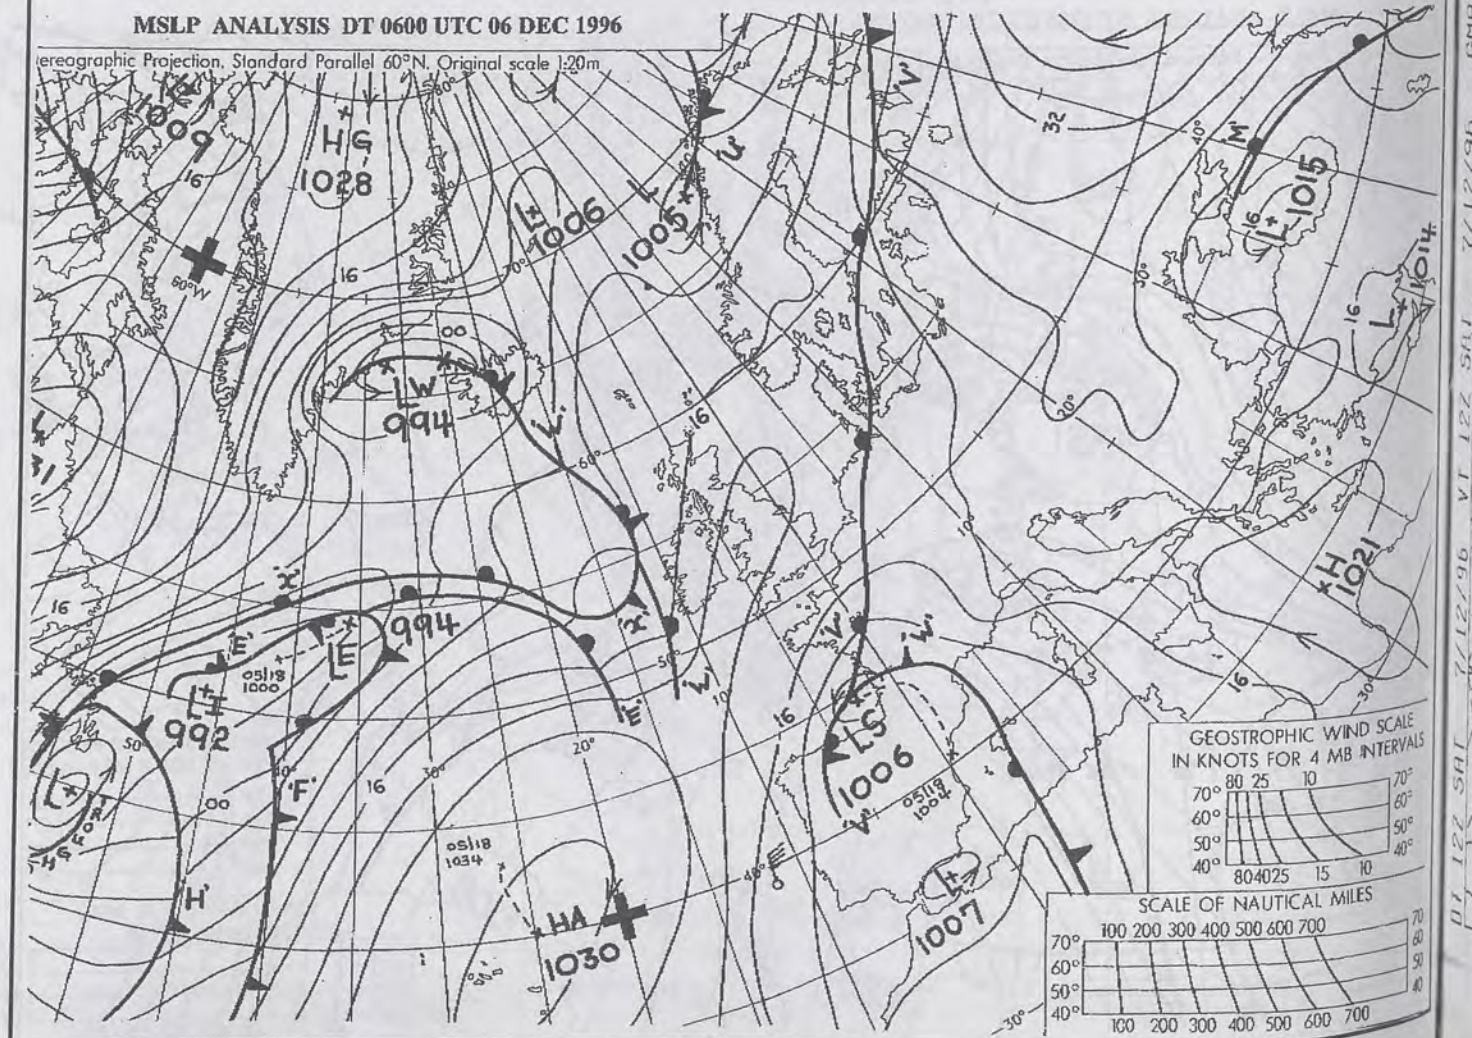 MSLP ANALYSIS DT 0600 UTC 06 DEC 1996
ereographic Projection, Standard Parallel 60°N. Original scale 1:20m
80°
1009
16
HG
1028
L
1006
L
1005
'U'
'V'
32
40°
'M'
16
L 1015
L 1014
16
60°W
16
70°
30°
00
LW
994
'L'
60°
16
20°
10°
H
1021
16
'X'
'E'
LE
994
05/18
1000
LH
992
'X'
50°
'L'
10
'E'
'V'
'L'
16
16
30°
LS
1006
05/18
1004
'V'
50°
L
00
40°
'F'
16
30°
20°
05/18
1034
HA
1030
'H'
40°
L
1007
30°
GEOSTROPHIC WIND SCALE
IN KNOTS FOR 4 MB INTERVALS
80 25 10
70° 70°
60° 60°
50° 50°
40° 40°
80 40 25 15 10
SCALE OF NAUTICAL MILES
100 200 300 400 500 600 700
70° 70
60° 60
50° 50
40° 40
100 200 300 400 500 600 700
DT 12Z SAT 7/12/96 VT 12Z SAT 7/12/96